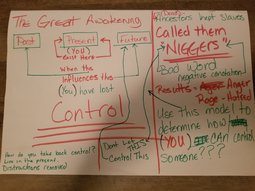 The Great Awakening
Past
Present
Future
(You)
Exist Here
When the
Influences this
(You) have lost
Control
How do you take back control?
Live in the present
Distractions removed
Dont Let THIS
Control This
Ancestors kept Slaves
Called them
"NIGGERS"
Bad Word
negative connotation
Results - Anger
Rage - Hatred
Use this model to
determine how
(You) CAN control
someone???